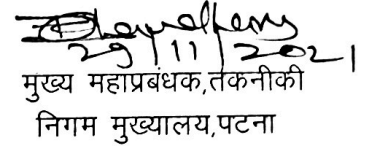 29/11/2021
मुख्य महाप्रबंधक,तकनीकी
निगम मुख्यालय,पटना